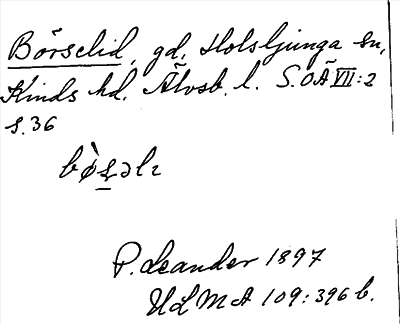 Börselid, gd, Holsljunga sn,
Kinds hd. Älvsb. l. S.O.Ä VII:2
s. 36
bø̀s̱əlɩ
P. Leander 1897
ULMA 109:396 b.